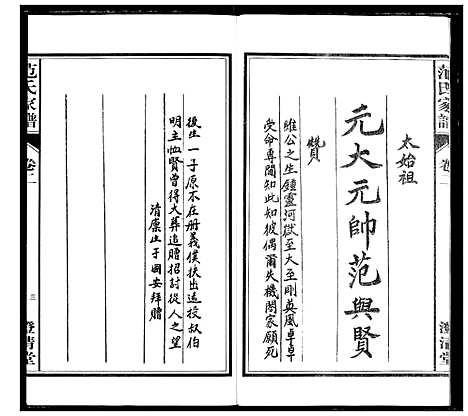 范氏家譜
卷二
澄清堂
太始祖
元大元帥范興賢
贊
維公之生鍾靈河嶽至大至剛英風卓卓
受命專閫知此知彼偶爾失機闔家願死
後生一子原不在册義僕扶出送授叔伯
明主恤賢曾得大葬追贈招討從人之望
清廪生于國安拜贈
范氏家譜
卷二
三
澄清堂